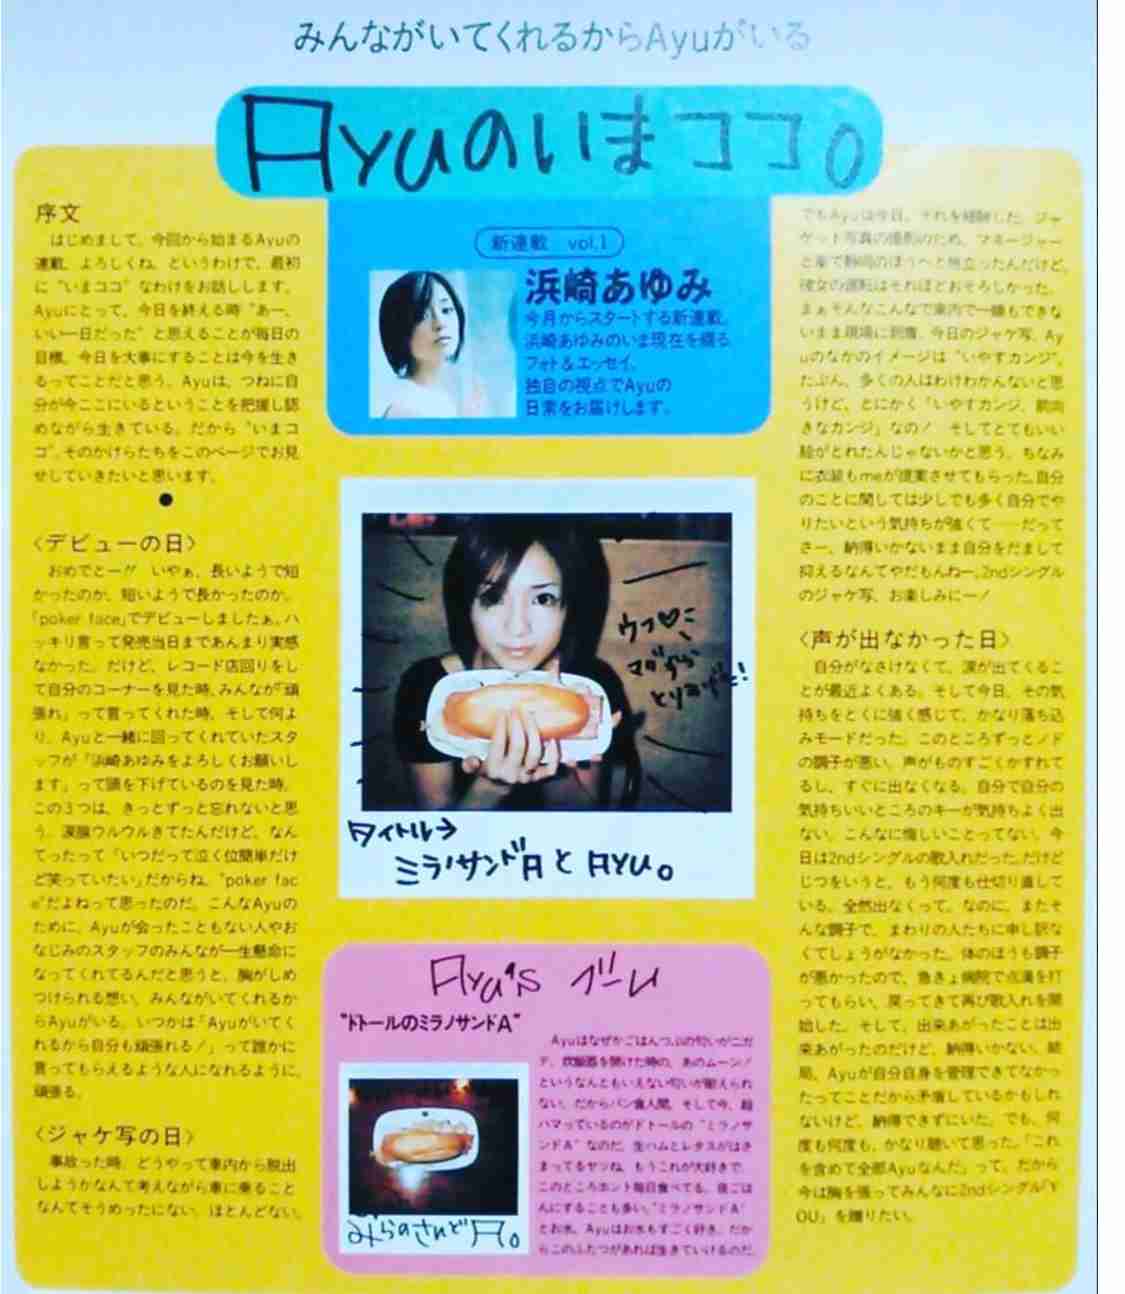 みんながいてくれるからAyuがいる
Ayuのいまココ。
新連載 vol.1
浜崎あゆみ
今月からスタートする新連載。
浜崎あゆみのいま現在を綴る
フォト&エッセイ。
独自の視点でAyuの
日常をお届けします。
序文
はじめまして。今回から始まるAyuの
連載、よろしくね。というわけで、最初
に“いまココ”なわけをお話しします。
Ayuにとって、今日を終える時“あー、
いい一日だった”と思えることが毎日の
目標。今日を大事にすることは今を生き
るってことだと思う。Ayuは、つねに自
分が今ここにいるということを把握し認
めながら生きている。だから“いまコ
コ”。そのかけらたちをこのページでお見
せしていきたいと思います。
●
〈デビューの日〉
おめでとー!! いやぁ、長いようで短
かったのか、短いようで長かったのか。
「poker face」でデビューしましたぁ。ハ
ッキリ言って発売当日まであんまり実感
なかった。だけど、レコード店回りをし
て自分のコーナーを見た時、みんなが「頑
張れ」って言ってくれた時、そして何よ
り、Ayuと一緒に回ってくれていたスタ
ッフが「浜崎あゆみをよろしくお願いし
ます」って頭を下げているのを見た時。
この3つは、きっとずっと忘れないと思
う。涙腺ウルウルきてたんだけど、なん
てったって「いつだって泣く位簡単だけ
ど笑っていたい」だからね。“poker fac
e”だよねって思ったのだ。こんなAyuの
ために、Ayuが会ったこともない人やお
なじみのスタッフのみんなが一生懸命に
なってくれてるんだと思うと、胸がしめ
つけられる想い。みんながいてくれるか
らAyuがいる。いつかは「Ayuがいてく
れるから自分も頑張れる!」って誰かに
言ってもらえるような人になれるように、
頑張る。
〈ジャケ写の日〉
事故った時、どうやって車内から脱出
しようかなんて考えながら車に乗ること
なんてそうめったにない。ほとんどない。
ウフ♡
タイトル→
ミラノサンドAとAYU。
Ayu's ブーム
“ドトールのミラノサンドA”
Ayuはなぜかごはんつぶの匂いがニガ
テ。炊飯器を開けた時の、あのムーン!
というなんともいえない匂いが耐えられ
ない。だからパン食人間。そして今、超
ハマっているのがドトールの“ミラノサ
ンドA”なのだ。生ハムとレタスがはさ
まってるヤツね。もうこれが大好きで、
このところホント毎日食べてる。夜ごは
んにすることも多い。“ミラノサンドA”
とお水。Ayuはお水もすごく好き。だか
らこのふたつがあれば生きていけるのだ。
みらのさんどA。
でもAyuは今日、それを経験した。ジャ
ケット写真の撮影のため、マネージャー
と車で静岡のほうへと旅立ったんだけど、
彼女の運転はそれほどおそろしかった。
まぁそんなこんなで車内で一睡もできな
いまま現場に到着。今日のジャケ写、Ay
uのなかのイメージは“いやすカンジ”。
たぶん、多くの人はわけわかんないと思
うけど、とにかく「いやすカンジ、前向
きなカンジ」なの! そしてとてもいい
絵がとれたんじゃないかと思う。ちなみ
に衣装もmeが提案させてもらった。自分
のことに関しては少しでも多く自分でや
りたいという気持ちが強くて……だって
さー、納得いかないまま自分をだまして
抑えるなんてやだもんねー。2ndシングル
のジャケ写、お楽しみにー!
〈声が出なかった日〉
自分がなさけなくて、涙が出てくるこ
とが最近よくある。そして今日、その気
持ちをとくに強く感じて、かなり落ち込
みモードだった。このところずっとノド
の調子が悪い。声がものすごくかすれて
るし、すぐに出なくなる。自分で自分の
気持ちいいところのキーが気持ちよく出
ない。こんなに悔しいことってない。今
日は2ndシングルの歌入れだった。だけど
じつをいうと、もう何度も仕切り直して
いる。全然出なくって。なのに、またそ
んな調子で、まわりの人たちに申し訳な
くてしょうがなかった。体のほうも調子
が悪かったので、急きょ病院で点滴を打
ってもらい、戻ってきて再び歌入れを開
始した。そして、出来あがったことは出
来あがったのだけど、納得いかない。結
局、Ayuが自分自身を管理できてなかっ
たってことだから矛盾しているかもしれ
ないけど、納得できずにいた。でも、何
度も何度も、かなり聴いて思った。「これ
を含めて全部Ayuなんだ」って。だから
今は胸を張ってみんなに2ndシングル「Y
OU」を贈りたい。